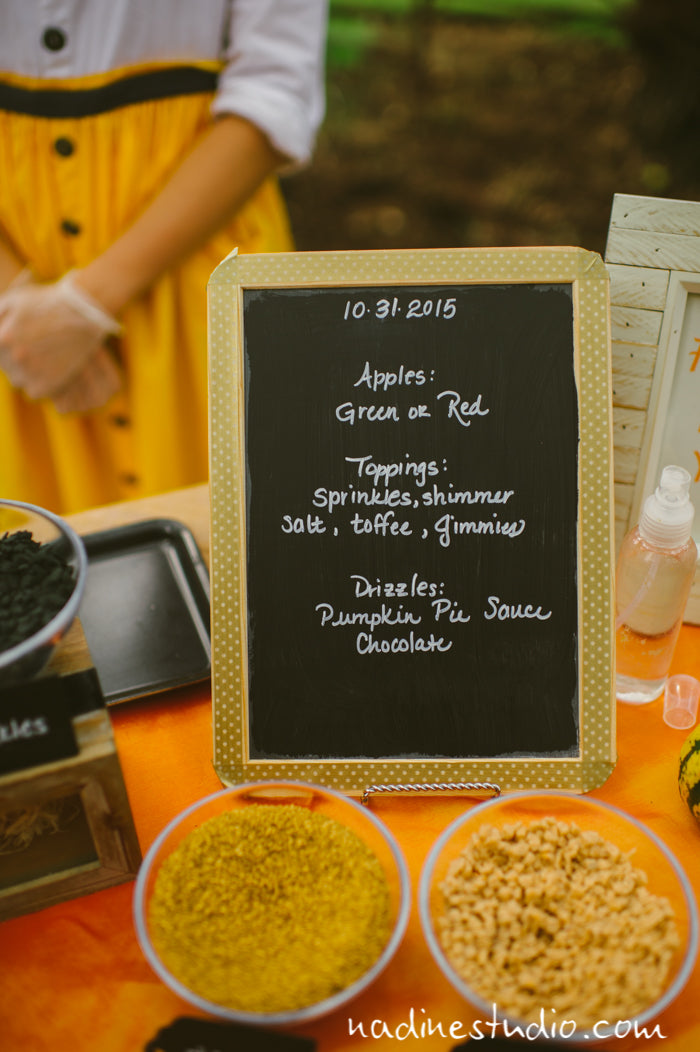 10.31.2015
Apples:
Green or Red
Toppings:
Sprinkles, shimmer
salt, toffee, gimmies
Drizzles:
Pumpkin Pie Sauce
Chocolate
nadinestudio.com